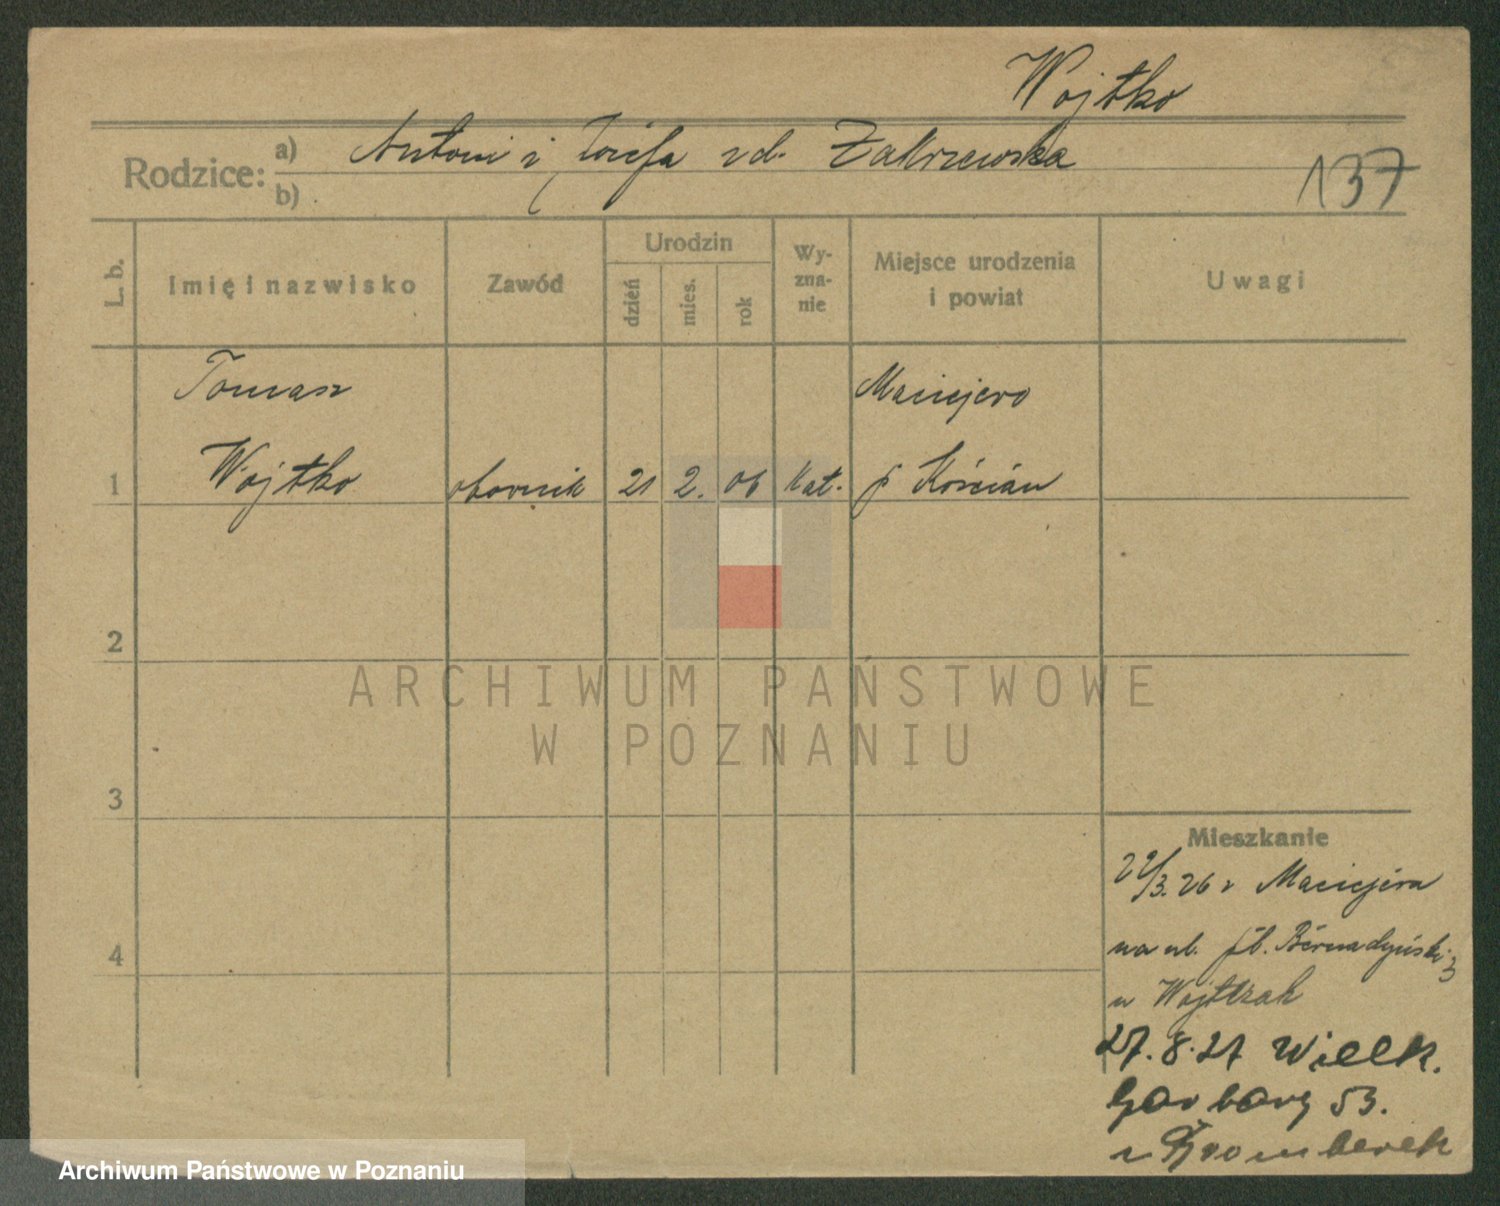 Wojtko
Rodzice: a) Antoni i Józefa zd. Zakrzewska
b)
137
L. b. Imię i nazwisko Zawód Urodzin dzień mies. rok Wy-zna-nie Miejsce urodzenia i powiat Uwagi
Tomasz Maciejewo
1 Wojtko 21 2. 06 kat. p Kościan
2
ARCHIWUM PAŃSTWOWE
W POZNANIU
3
Mieszkanie
22/3. 26 z Maciejewa
4 na ul. pl. Bernadyński 3
u Wojtkak
27. 8. 27 Wielk.
Garbary 53.
Archiwum Państwowe w Poznaniu